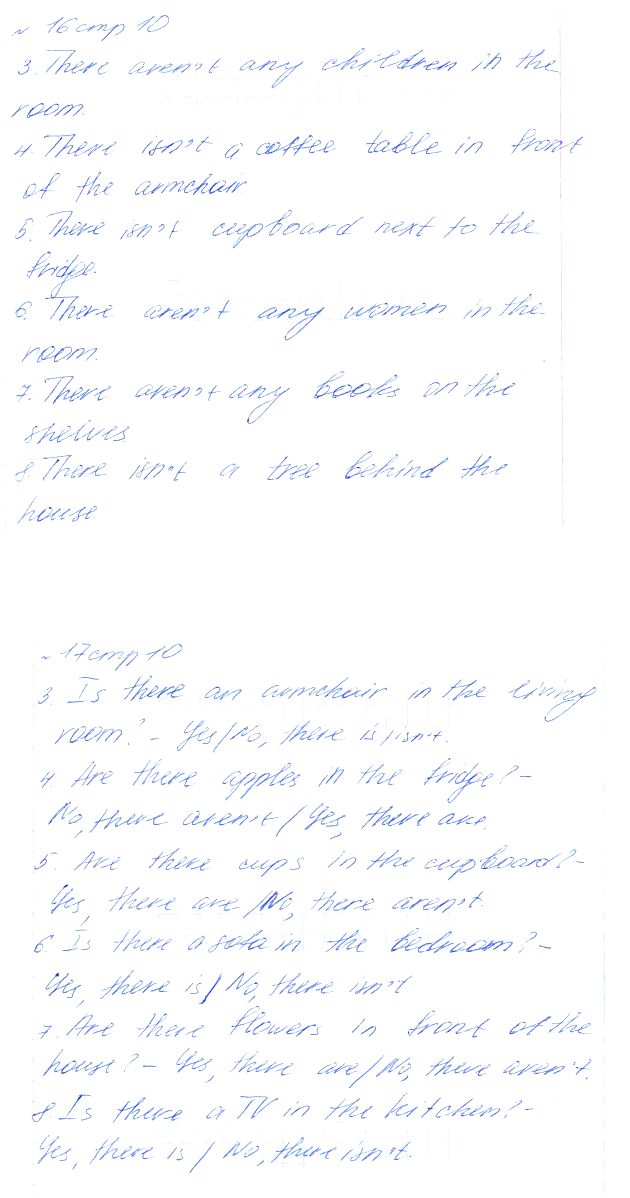 № 16 стр 10
3. There aren't any children in the
room.
4. There isn't a coffee table in front
of the armchair
5. There isn't cupboard next to the
fridge.
6. There aren't any women in the
room.
7. There aren't any books on the
shelves
8. There isn't a tree behind the
house
№ 17 стр 10
3. Is there an armchair in the living
room? – Yes/No, there is/isn't.
4. Are there apples in the fridge? –
No, there aren't / Yes, there are.
5. Are there cups in the cupboard? –
Yes, there are / No, there aren't.
6. Is there a sofa in the bedroom? –
Yes, there is / No, there isn't
7. Are there flowers in front of the
house? – Yes, there are / No, there aren't.
8 Is there a TV in the kitchen? –
Yes, there is / No, there isn't.